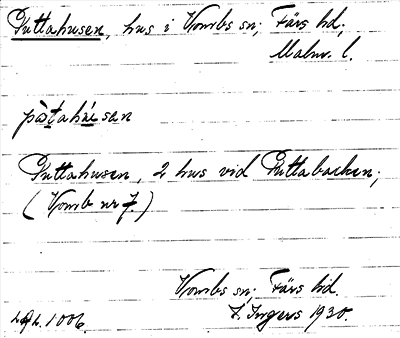 Puttahusen, hus i Vombs sn; Färs hd;
Malm. l.
Puttahusen, 2 hus vid Puttabacken;
(Vomb nr 7.)
Vombs sn; Färs hd.
I. Ingers 1930.
1006.